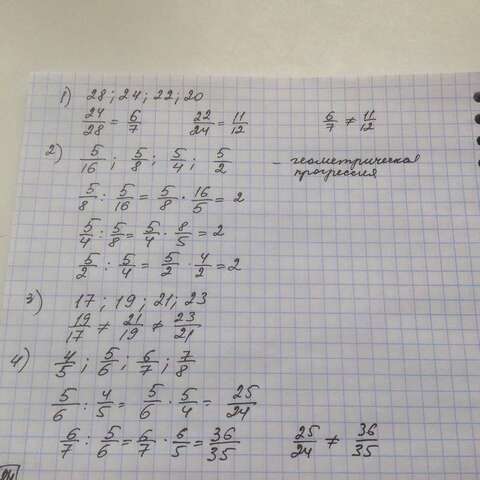 1) 28 ; 24 ; 22 ; 20
24/28 = 6/7   22/24 = 11/12   6/7 ≠ 11/12
2) 5/16 ; 5/8 ; 5/4 ; 5/2 – геометрическая прогрессия
5/8 : 5/16 = 5/8 · 16/5 = 2
5/4 : 5/8 = 5/4 · 8/5 = 2
5/2 : 5/4 = 5/2 · 4/2 = 2
3) 17 ; 19 ; 21 ; 23
19/17 ≠ 21/19 ≠ 23/21
4) 4/5 ; 5/6 ; 6/7 ; 7/8
5/6 : 4/5 = 5/6 · 5/4 = 25/24
6/7 : 5/6 = 6/7 · 6/5 = 36/35   25/24 ≠ 36/35